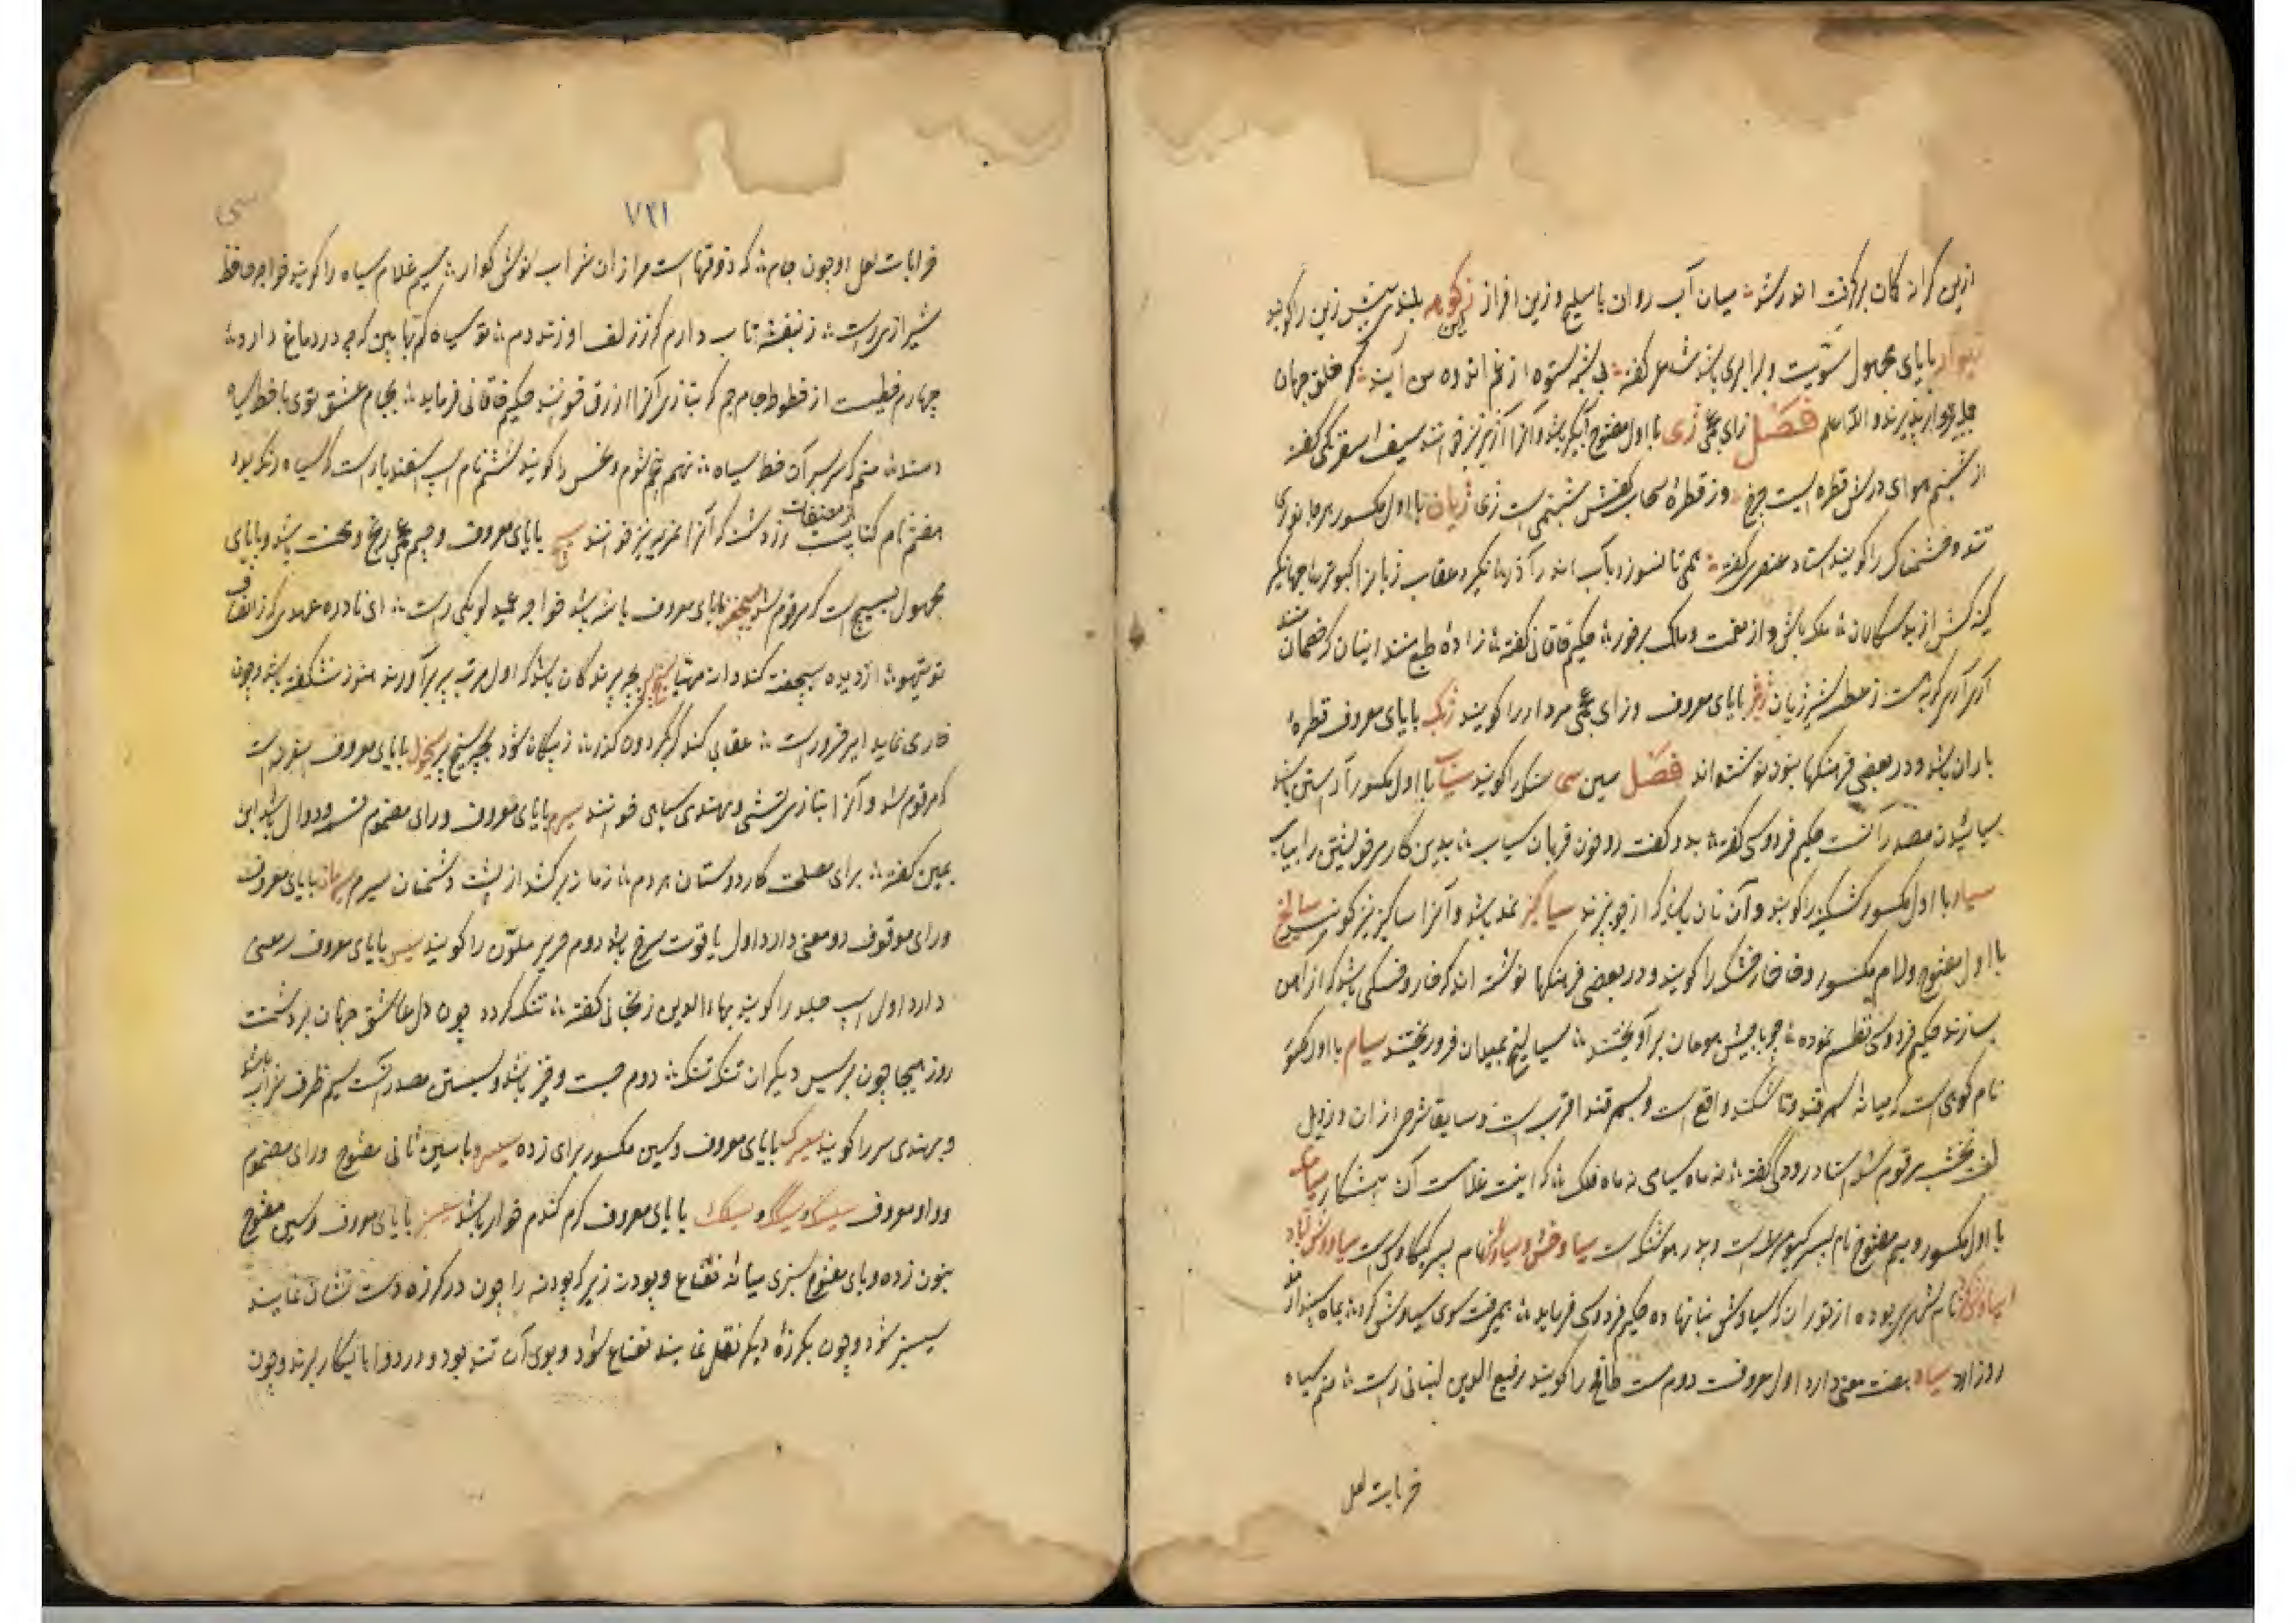 ازین کرانه کمان برگرفت اندر شد میان آب روان با سلیح و زین افزار زین کوهه بلندی پیش زین را گویند
زیوار بایای مجهول تسویت و برابری باشد شاعر گفته از غم اندوه من آیند که خلق جهان
جمله زیوار پذیرند والله اعلم فصل زای عجمی ژی با اول مفتوح آبگیر باشد و آنرا آژیر نیز خوانند سیف اسفرنکی گفته
از شبنم هوای درش قطره ایست چرخ وز قطرهٔ سحاب کفش شبنمی است ژی ژیان با اول مکسور هر جانوری
تند و خشمناک را گویند استاد عنصری گفته همی تا نسوزد بآب اندر آذر نگیرد عقاب ژیانرا کبوتر جهانگیر
کینه کش از بدسگالان ملک باش و از نعمت و ملک برخور حکیم خاقانی گفته زادهٔ طبع منند اینان که خصمان منند
آری آری گربه هست از عطسهٔ شیر ژیان ژیژ بایای معروف و زای عجمی مردار را گویند ژیک بایای معروف قطرهٔ
باران باشد و در بعضی فرهنگها بنون نوشته‌اند فصل سین سی سنگ را گویند سیاب با اول مکسور باشد
سیابیدن مصدر آنست حکیم فردوسی گفته بدو گفت رو خون قربان سیاب بدین کار مر خویشتن را بیاب
سیار با اول مکسور کشکینه را گویند و آن نان باشد که از جو پزند سیاکیز نمد باشد و آنرا ساکیز نیز گویند سیالخ
با اول مفتوح و لام مکسور و خا خارخسک را گویند و در بعضی فرهنگها نوشته اند که خار و خسکی باشد که از آهن
بسازند حکیم فردوسی نظم نموده چو با جیش هومان برآویختند سیالخ بمیدان فرو ریختند سیام با اول مکسور
نام کوهی است که میانهٔ سمرقند و تاشکند واقع است و بسمرقند اقرب است و سابقا شرحی از آن در ذیل
لغت نخشب مرقوم شد استاد رودکی گفته نه ماه سیامی نه ماه فلک که اینت غلامست و آن پیشکار سیامک
با اول مکسور و میم مفتوح نام پسر کیومرث است و پدر هوشنگ است سیاوخش و سیاوش نام پسر کیکاوس است سیاووش آباد
سیاوش گرد نام شهری بوده از توران که سیاوش بنا نهاده حکیم فردوسی فرماید همی رفت سوی سیاوش گرد بماه سپندارمذ
روز ارد سیاه هفت معنی دارد اول معروف دوم مست طافح را گویند رفیع الدین لنبانی راست منم سیاه
خرابات لعل
۷۳۱
سی
خرابات لعل او چون جام که ذوقهاست مرا زان شراب نوش گوار سیم غلام سیاه را گویند خواجه حافظ
شیرازی راست ز بنفشه تاب دارم که ز زلف او زند دم تو سیاه کم بها بین که چه در دماغ دارد
چهارم خطیست از خطوط جام جم که بتازی آنرا ازرق خوانند حکیم خاقانی فرماید بجام عشق توی تا خط سیاه
دهند منم که سر بر آن خط سیاه نهم پنجم شوم و نحس را گویند ششم نام اسپ اسفندیار است که سیاه رنگ بود
هفتم نام کتابیست از مصنفات زردشت که آنرا نیز خوانند سیج بایای معروف و جیم عجمی رنج و محنت باشد و بایای
مجهول بسیج است که مرقوم شد بایای معروف پاشه باشد خواجه عمید لویکی راست ای نادره عهدی که ز انصاف
تو تیهو از دیده کند دانه مهیا سیخ پر بچهٔ پرندگان باشد که اول مرتبه پر برآورند هنوز نشگفته باشد و چون
خاری نماید امیر خسرو راست عقابی کند گر بگردون گذر ز پیکان شود بچهٔ سیخ پر سیخول بایای معروف است
که مرقوم شد و آنرا بتازی تشی و بهندی سیاهی خوانند سیرم بایای معروف و رای مضموم تسمه و دوال باشد ابن
یمین گفته برای مصلحت کار دوستان هر دم زمانه برکشد از پشت دشمنان سیرم سیرنگ بایای معروف
و رای موقوف دو معنی دارد اول یاقوت سرخ باشد دوم حریر ملون را گویند سیس بایای معروف سه معنی
دارد اول اسپ جلد را گویند بهاءالدین زنجانی گفته تنگ کرده چون دل عاشق جهان بر دشمنت
روز هیجا چون بر سیس دیگران تنگ تنگ دوم جست و خیز باشد و سیستن مصدر آنست سیم ظرف شراب باشد
و بهندی سر را گویند سیسرک بایای معروف و سین مکسور برای زده سیسرو با سین ثانی مفتوح و رای مضموم
و واو معروف سیسک و سیسک و سیسنک بایای معروف کرم گندم خوار باشد سیسنبر بایای معروف و سین مفتوح
بنون زده و بای مفتوح سبزی میانهٔ نعناع و پودنه زیراکه پودنه را چون در کرزه دست نشان نمایند
سیسنبر شود و چون بکرزهٔ دیگر نقل نمایند نعناع شود و بوی آن تند بود و در دواها بکار برند و چون